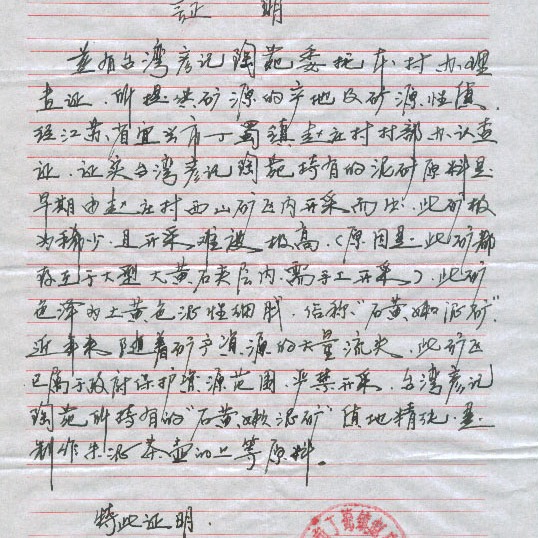 证 明
兹有台湾彦记陶苑委托本村办理
查证,所提供矿源的产地及矿源性质,
经江苏省宜兴市丁蜀镇赵庄村村部办认查
证,证实台湾彦记陶苑持有的泥矿原料是
早期由赵庄村西山矿区内开采而出,此矿极
为稀少,且开采难度极高,(原因是:此矿都
存在于大型大黄石夹层内,需手工开采),此矿
色泽为土黄色泥性细腻,俗称"石黄嫩泥矿"
近年来,随着矿产资源的大量流失,此矿区
已属于政府保护资源范围,严禁开采,台湾彦记
陶苑所持有的"石黄嫩泥矿"质地精纯,是
制作朱泥茶壶的上等原料。
特此证明.
市丁蜀镇赵